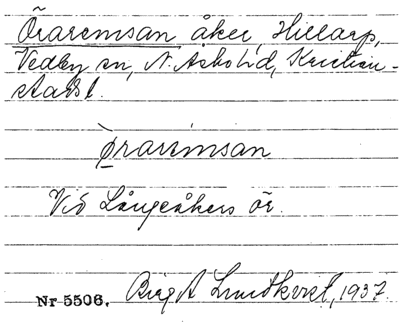 Öraremsan åker, Hillarp,
Vedby sn, N. Åsbo hd, Kristian-
stads l.
öraremsan
Vid Långåkers ör.
Nr 5506. Birgit Lundkvist, 1937.